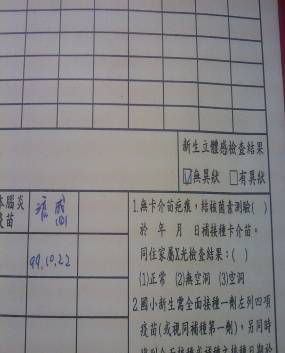 新生立體感檢查結果
☑無異狀 □有異狀
本腦炎
疫苗
99.10.22
1.無卡介苗疤痕,結核菌素測驗( )
於 年 月 日補接種卡介苗。
同住家屬X光檢查結果:( )
(1)正常 (2)無空洞 (3)空洞
2.國小新生需全面接種一劑左列四項
疫苗(或視同補種第一劑),另同時